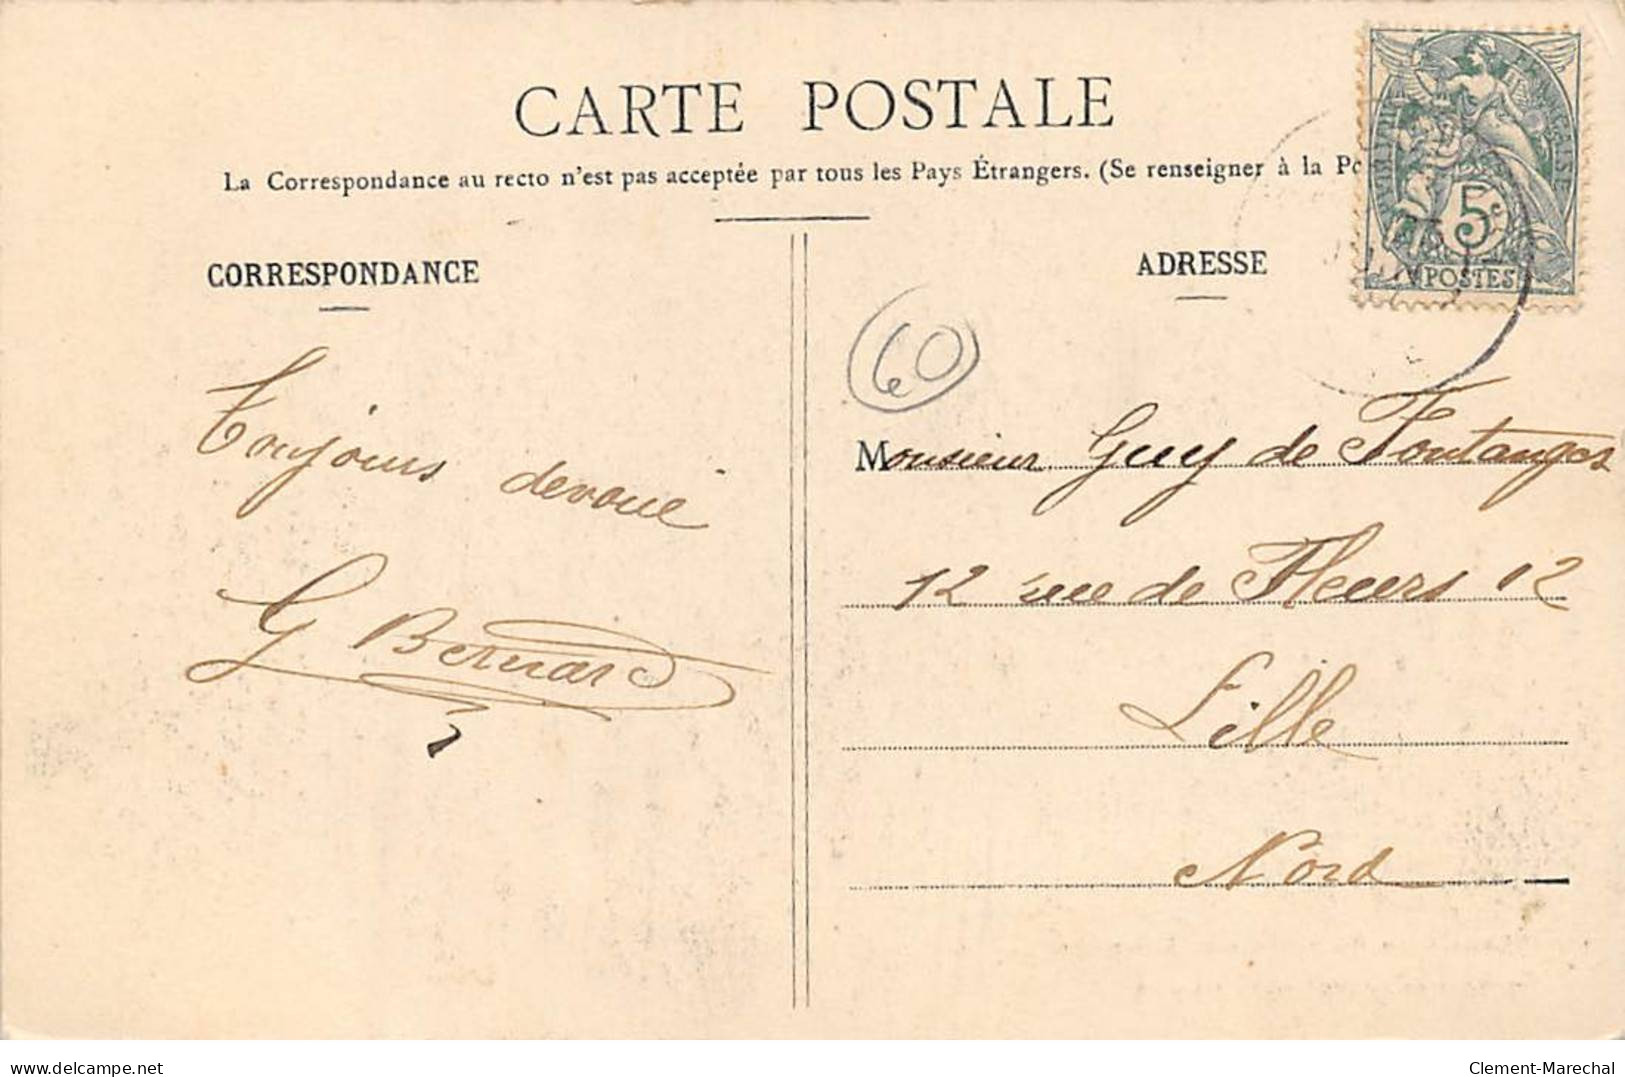 CARTE POSTALE
La Correspondance au recto n'est pas acceptée par tous les Pays Étrangers. (Se renseigner à la Po
CORRESPONDANCE
Toujours devoué
G Bernard
ADRESSE
60
Monsieur Guy de Fontanges
12 rue de Fleurs 12
Lille
Nord
REPUBLIQUE FRANÇAISE
5c
POSTES
www.delcampe.net
Clement-Marechal